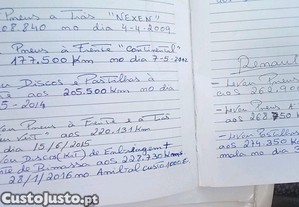 Pneus a Trás "NEXEN"
08.840 no dia 4-4-2009.
Pneus à Frente "Continental"
177,500 Km no dia 7-5-2012
Discos e Pastilhas à
aos 205.500 Km no dia
5-2014
Pneus à Frente e a Trás
aos 220.191 Km
dia 15/6/2015
Disco (Kit) de Embraiagem +
de aos 228.730 Kms
28/1/2016 no custo 1000 €
Renault
- Levou Pneus
aos 262.90
- Levou Pneus
aos 268.750 K
- Levou Pastilhas
aos 274.350 K
no dia
CustoJusto.pt